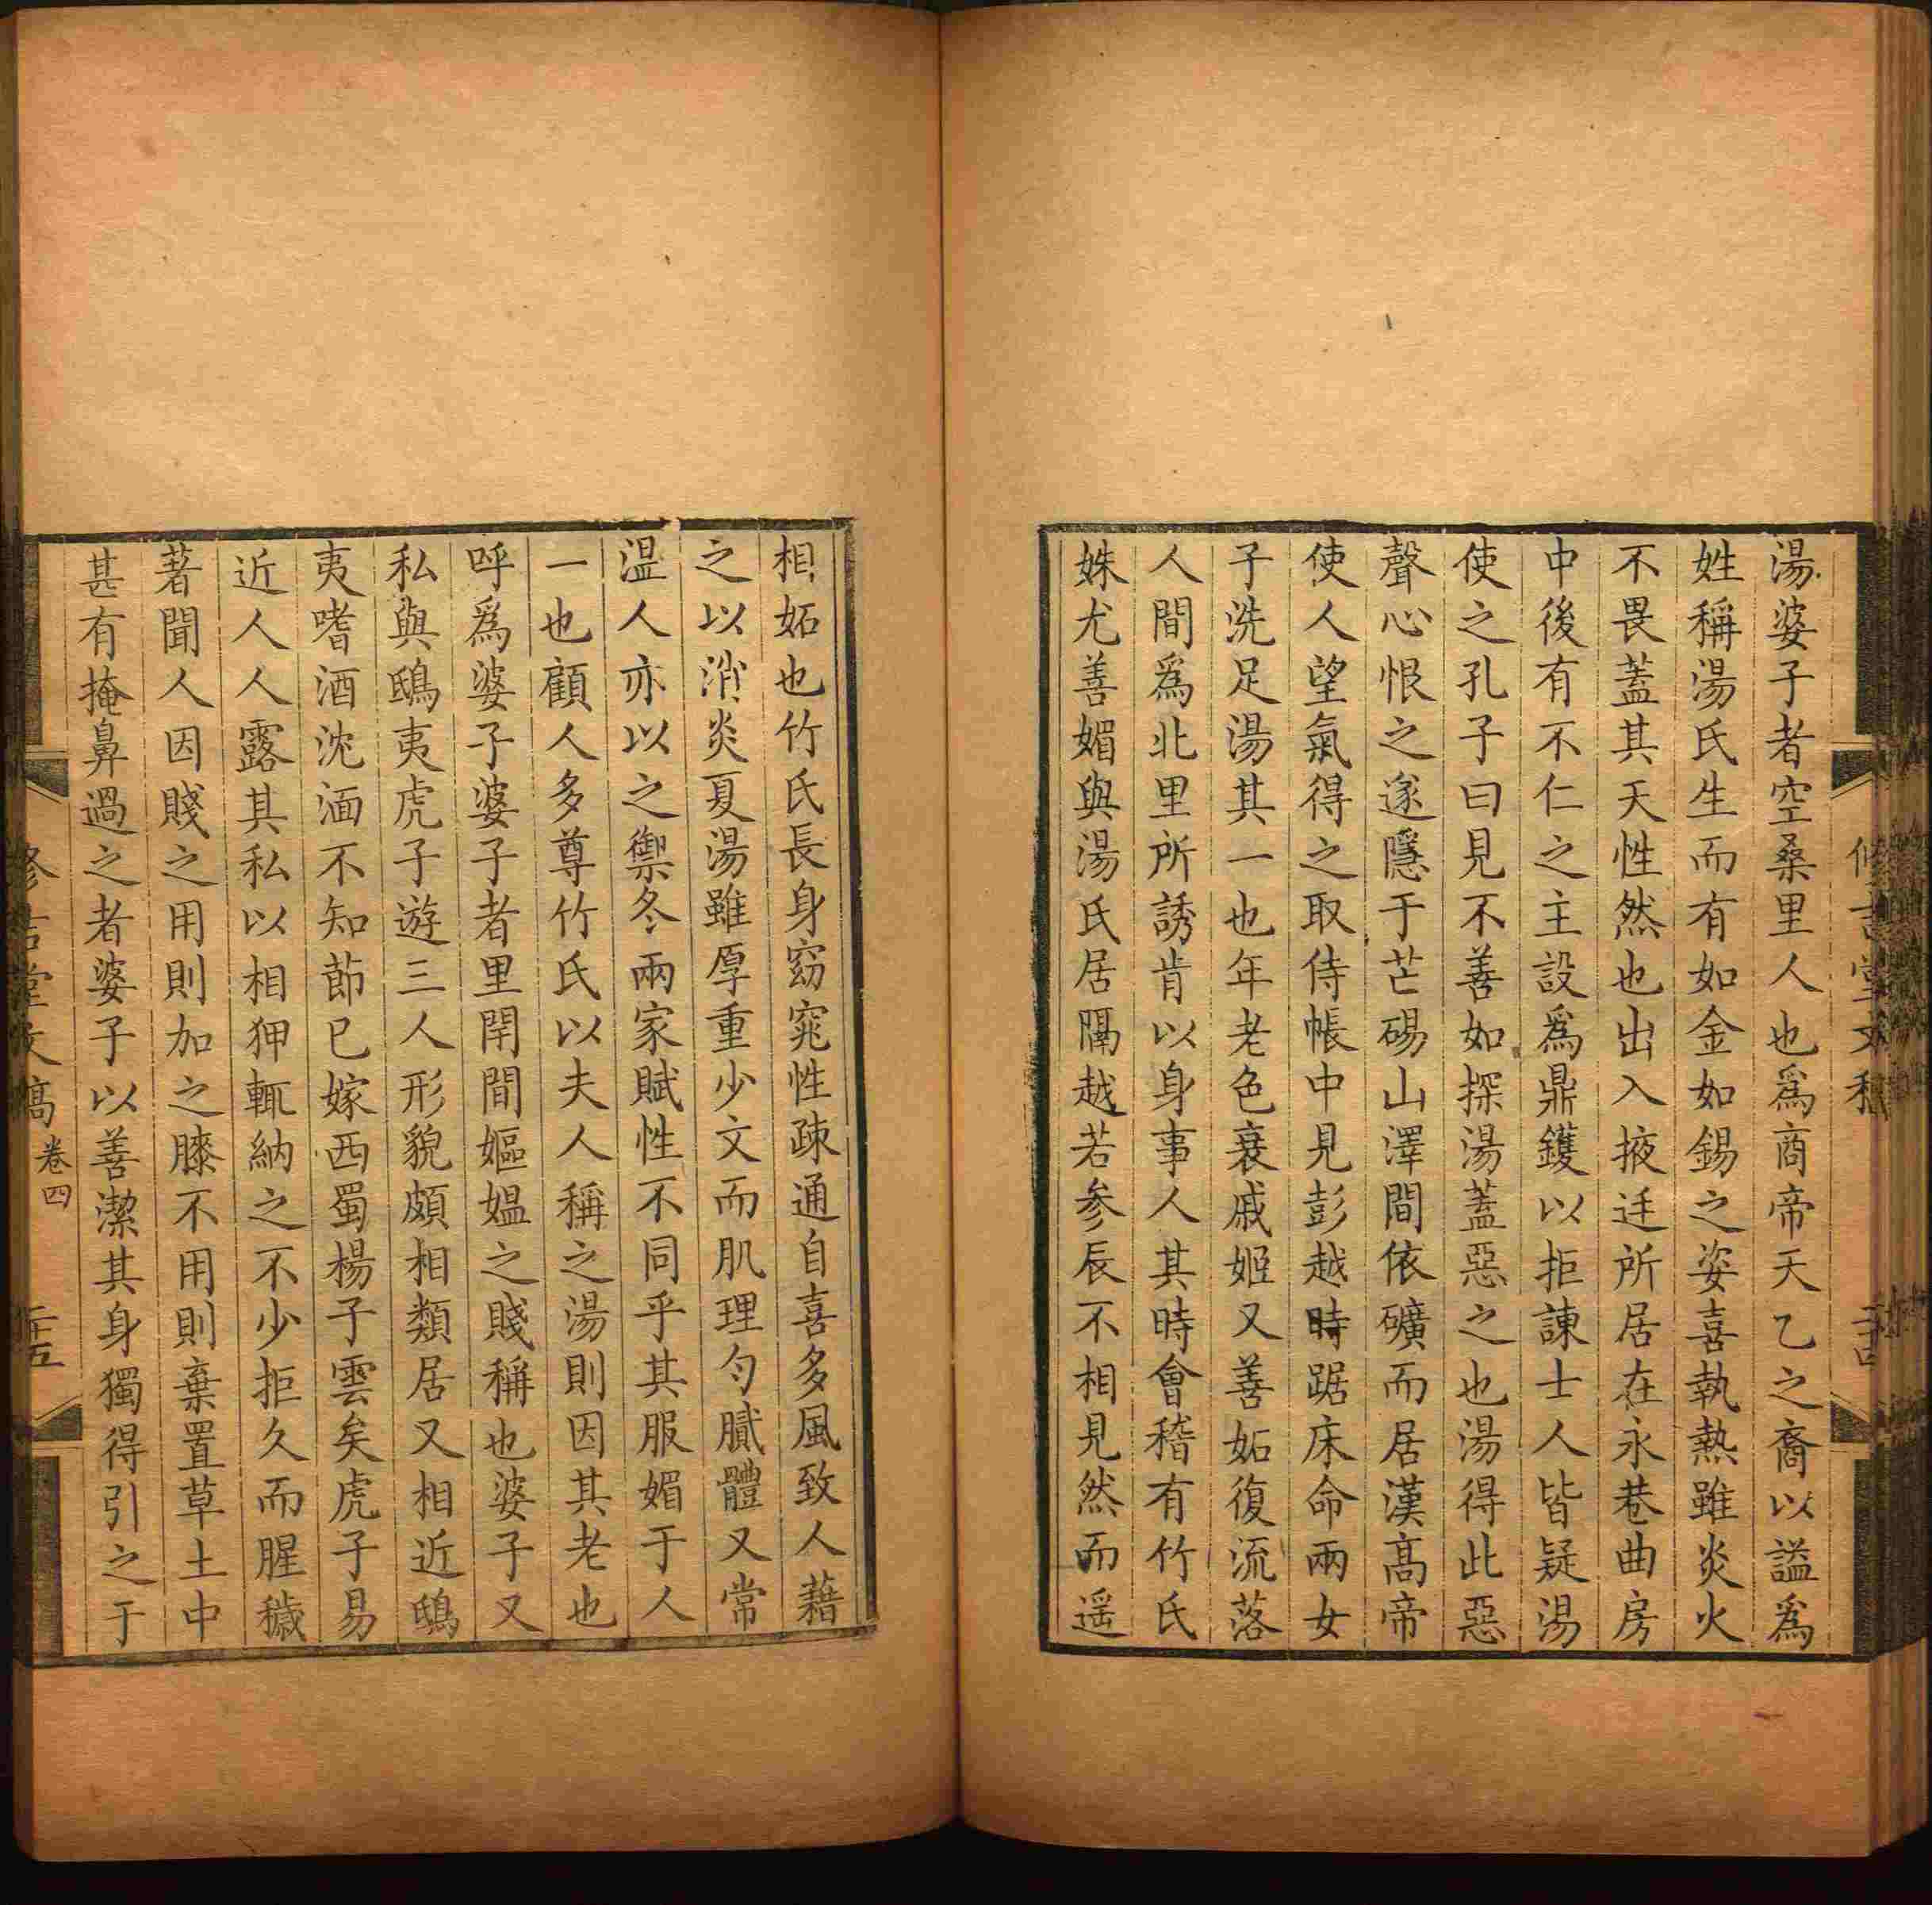 湯婆子者空桑里人也爲商帝天乙之裔以謚爲
姓稱湯氏生而有如金如錫之姿喜執熱雖炎火
不畏蓋其天性然也出入掖廷所居在永巷曲房
中後有不仁之主設爲鼎鑊以拒諫士人皆疑湯
使之孔子曰見不善如探湯蓋惡之也湯得此惡
聲心恨之遂隱于芒碭山澤間依礦而居漢高帝
使人望氣得之取侍帳中見彭越時踞床命兩女
子洗足湯其一也年老色衰戚姬又善妬復流落
人間爲北里所誘肯以身事人其時會稽有竹氏
姝尤善媚與湯氏居隔越若參辰不相見然而遥
相妬也竹氏長身窈窕性疎通自喜多風致人藉
之以消炎夏湯雖厚重少文而肌理勻膩體又常
温人亦以之禦冬兩家賦性不同乎其服媚于人
一也顧人多尊竹氏以夫人稱之湯則因其老也
呼爲婆子婆子者里閈間嫗媼之賤稱也婆子又
私與鴟夷虎子遊三人形貌頗相類居又相近鴟
夷嗜酒沈湎不知節已嫁西蜀楊子雲矣虎子易
近人人露其私以相狎輒納之不少拒久而腥穢
著聞人因賤之用則加之膝不用則棄置草土中
甚有掩鼻過之者婆子以善潔其身獨得引之于
修吉堂文稿 卷四 二十五